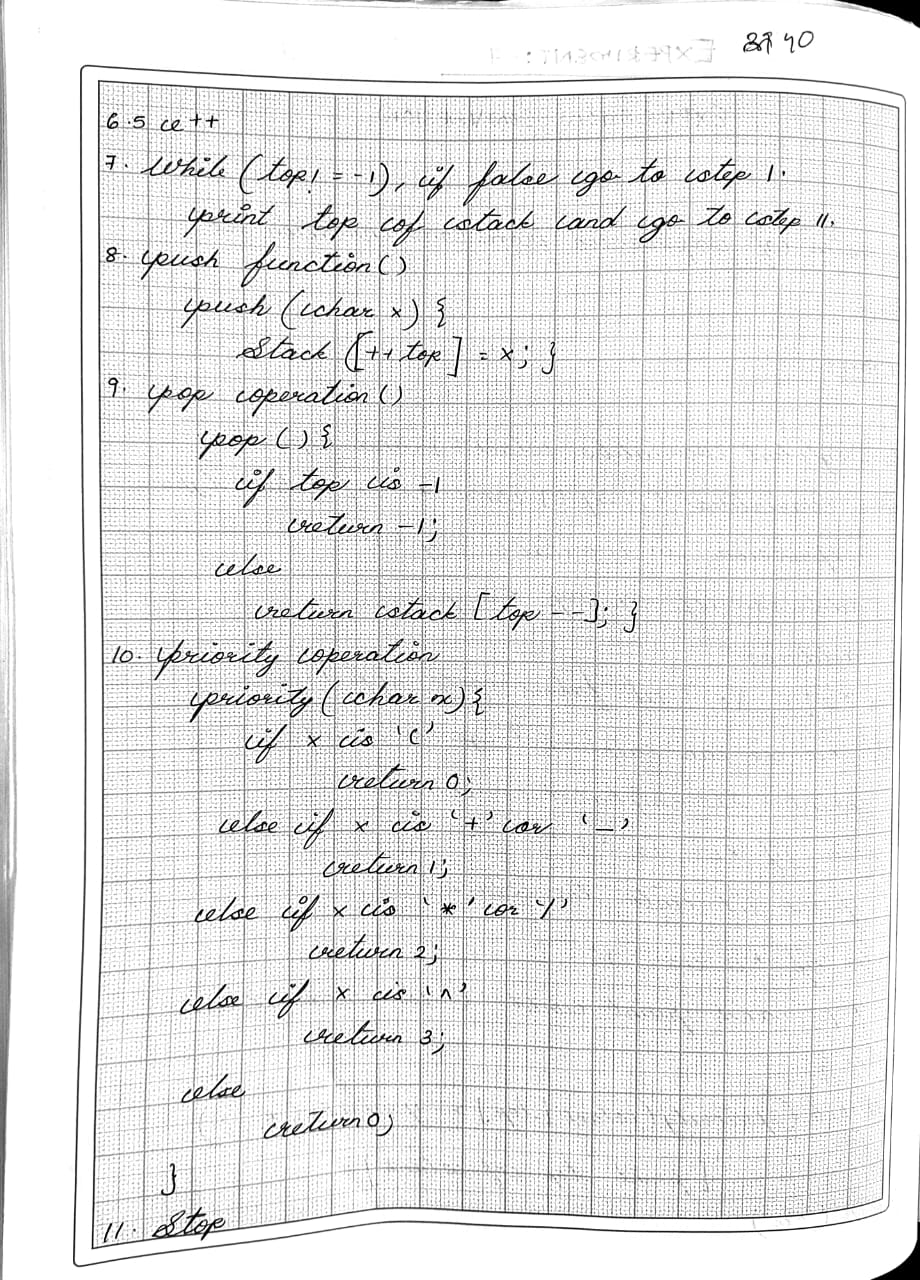 40
6.5 e++
7. while (top! = -1), if false go to step 1.
print top of stack and go to step 11.
8. push function()
push (char x) {
Stack [++top] = x; }
9. pop operation()
pop () {
if top is -1
return -1;
else
return stack [top --]; }
10. priority operation
priority (char x) {
if x is '('
return 0;
else if x is '+' or '-'
return 1;
else if x is '*' or '/'
return 2;
else if x is '^'
return 3;
else
return 0;
}
11. Stop